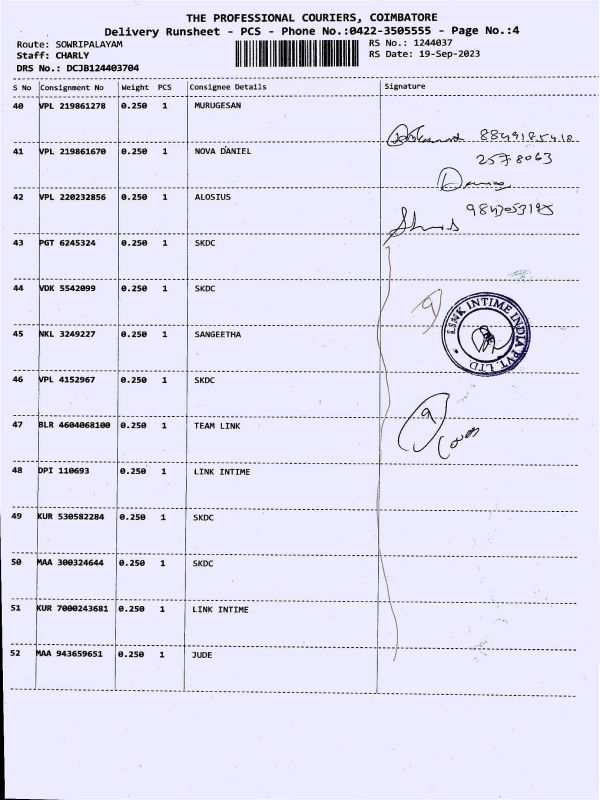 THE PROFESSIONAL COURIERS, COIMBATORE
Delivery Runsheet - PCS - Phone No.:0422-3505555 - Page No.:4
Route: SOWRIPALAYAM RS No.: 1244037
Staff: CHARLY RS Date: 19-Sep-2023
DRS No.: DCJB124403704
S No Consignment No Weight PCS Consignee Details Signature
40 VPL 219861278 0.250 1 MURUGESAN
41 VPL 219861670 0.250 1 NOVA DANIEL
2578063
42 VPL 220232856 0.250 1 ALOSIUS
43 PGT 6245324 0.250 1 SKDC
44 VDK 5542099 0.250 1 SKDC
9
LINK INTIME INDIA PVT. LTD
45 NKL 3249227 0.250 1 SANGEETHA
46 VPL 4152967 0.250 1 SKDC
9
47 BLR 4604068100 0.250 1 TEAM LINK
48 DPI 110693 0.250 1 LINK INTIME
49 KUR 530582284 0.250 1 SKDC
50 MAA 300324644 0.250 1 SKDC
51 KUR 7000243681 0.250 1 LINK INTIME
52 MAA 943659651 0.250 1 JUDE